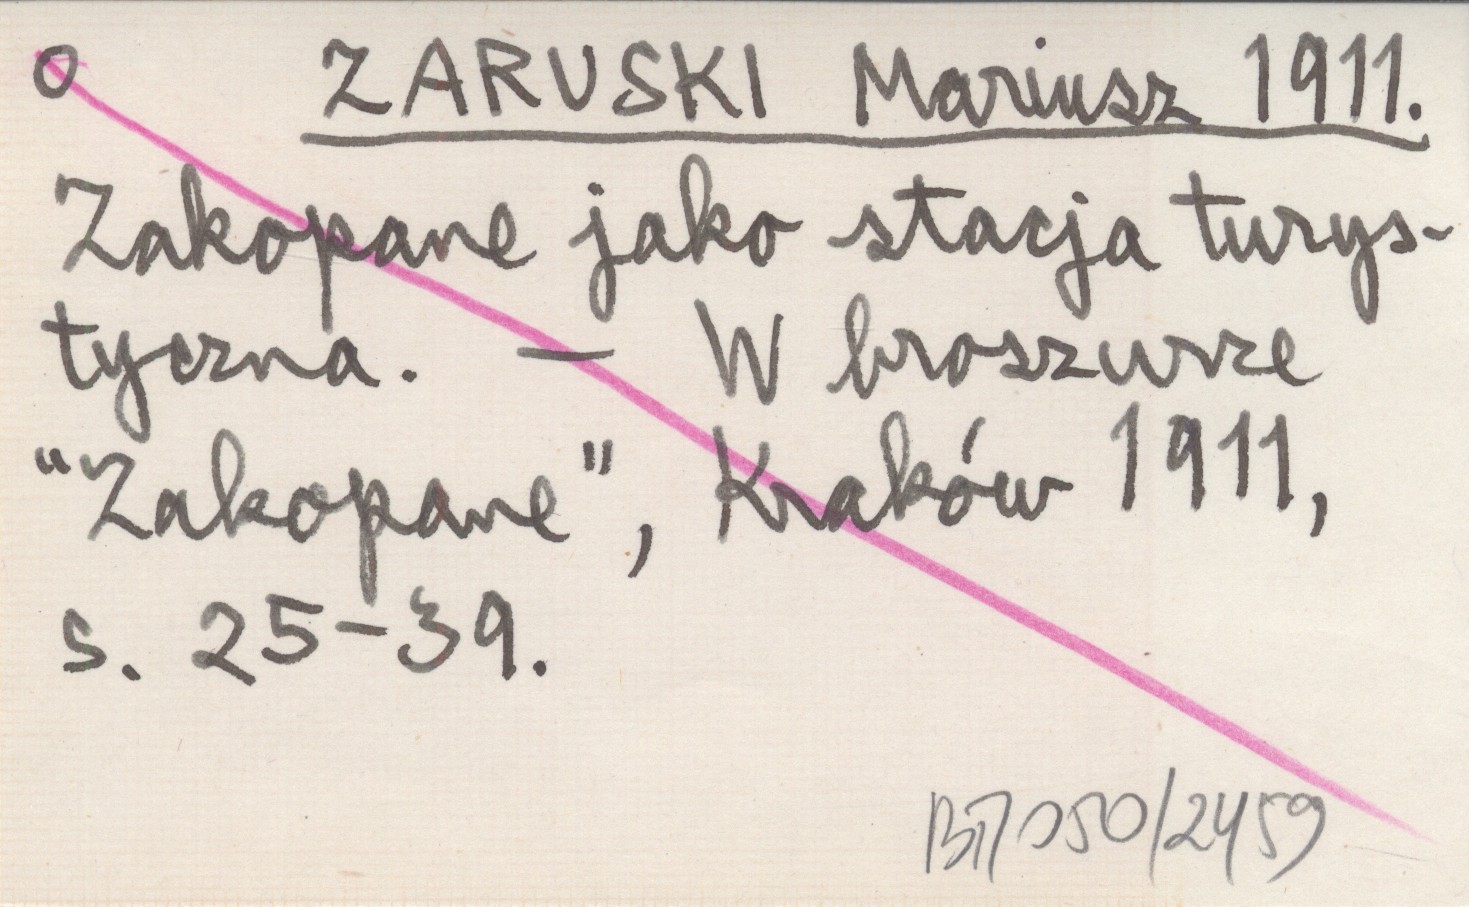 o ZARUSKI Mariusz 1911.
Zakopane jako stacja turys-
tyczna. — W broszurze
"Zakopane", Kraków 1911,
s. 25-39.